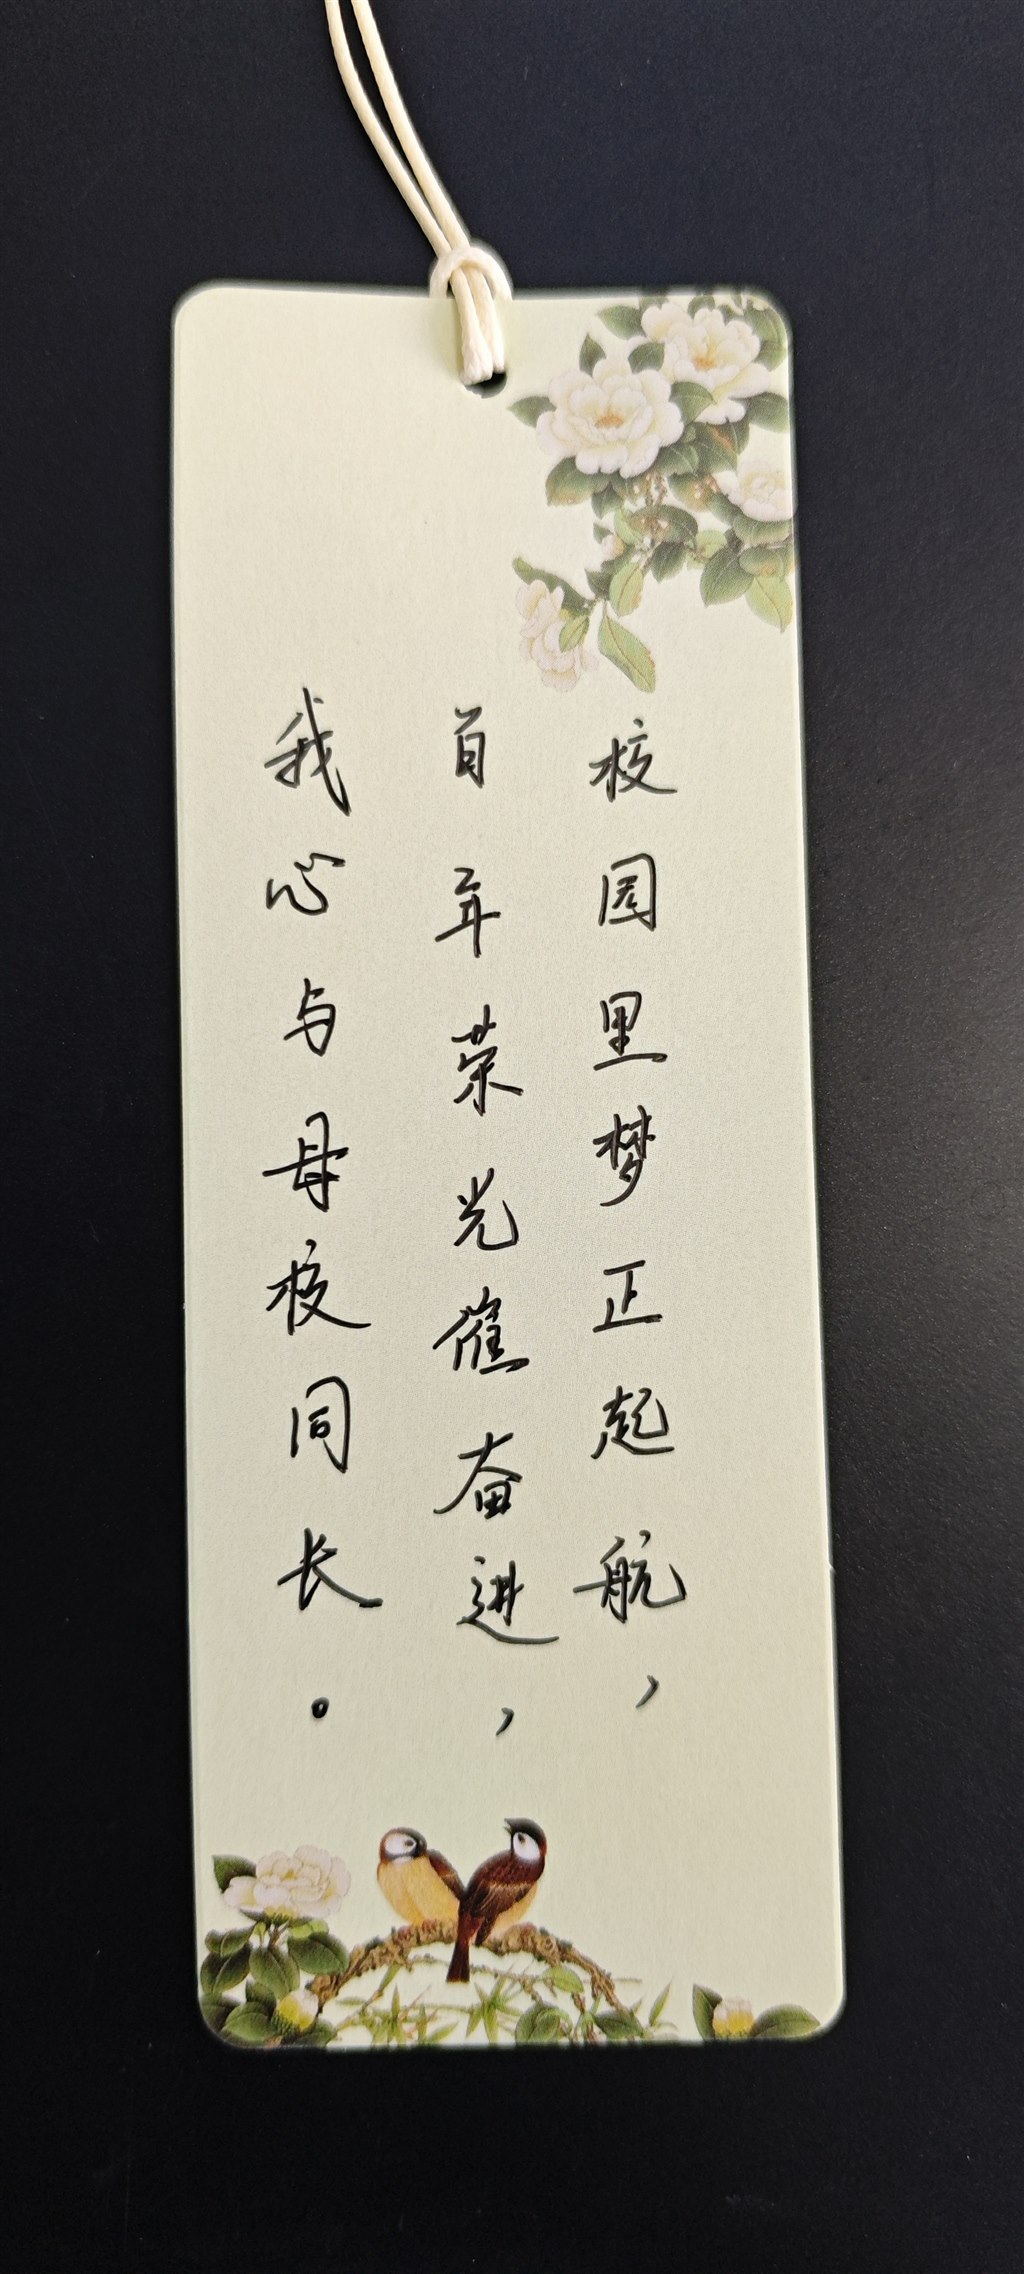 校园里梦正起航，
百年荣光催奋进，
我心与母校同长。